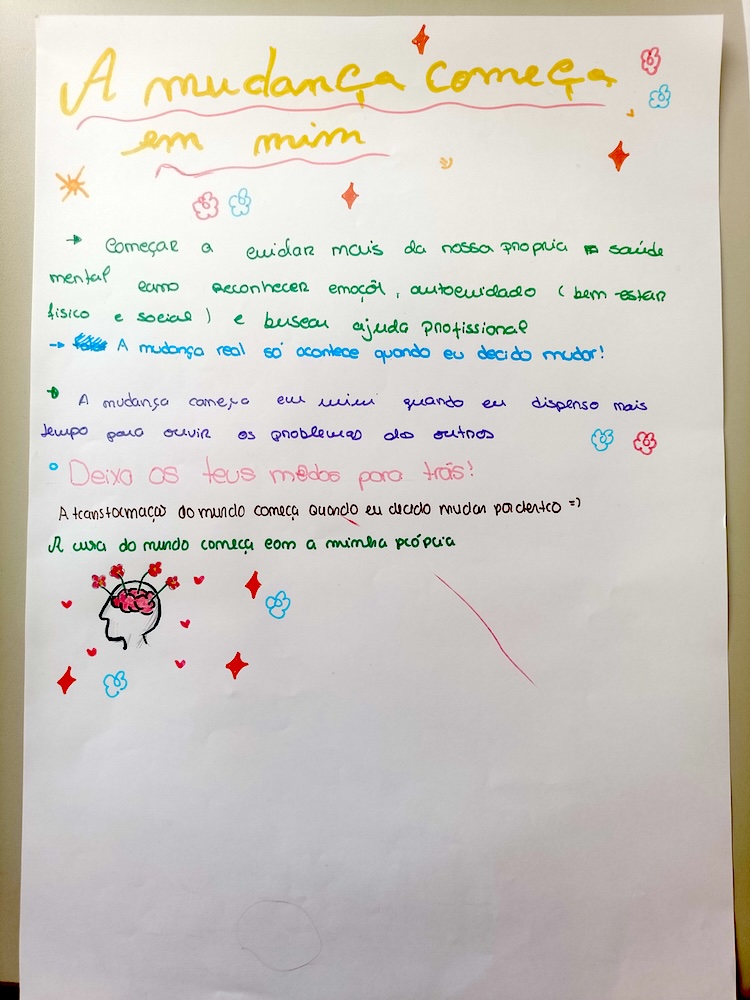 A mudança começa
em mim
→ Começar a cuidar mais da nossa propria saúde
mental como reconhecer emoçõl, autocuidado (bem-estar
fisico e social) e buscar ajuda profissional
→ A mudança real só acontece quando eu decido mudar!
→ A mudança começa em mim quando eu dispenso mais
tempo para ouvir os problemas dos outros
° Deixa os teus medos para trás!
A transformação do mundo começa quando eu decido mudar por dentro =)
A cura do mundo começa com a minha própria